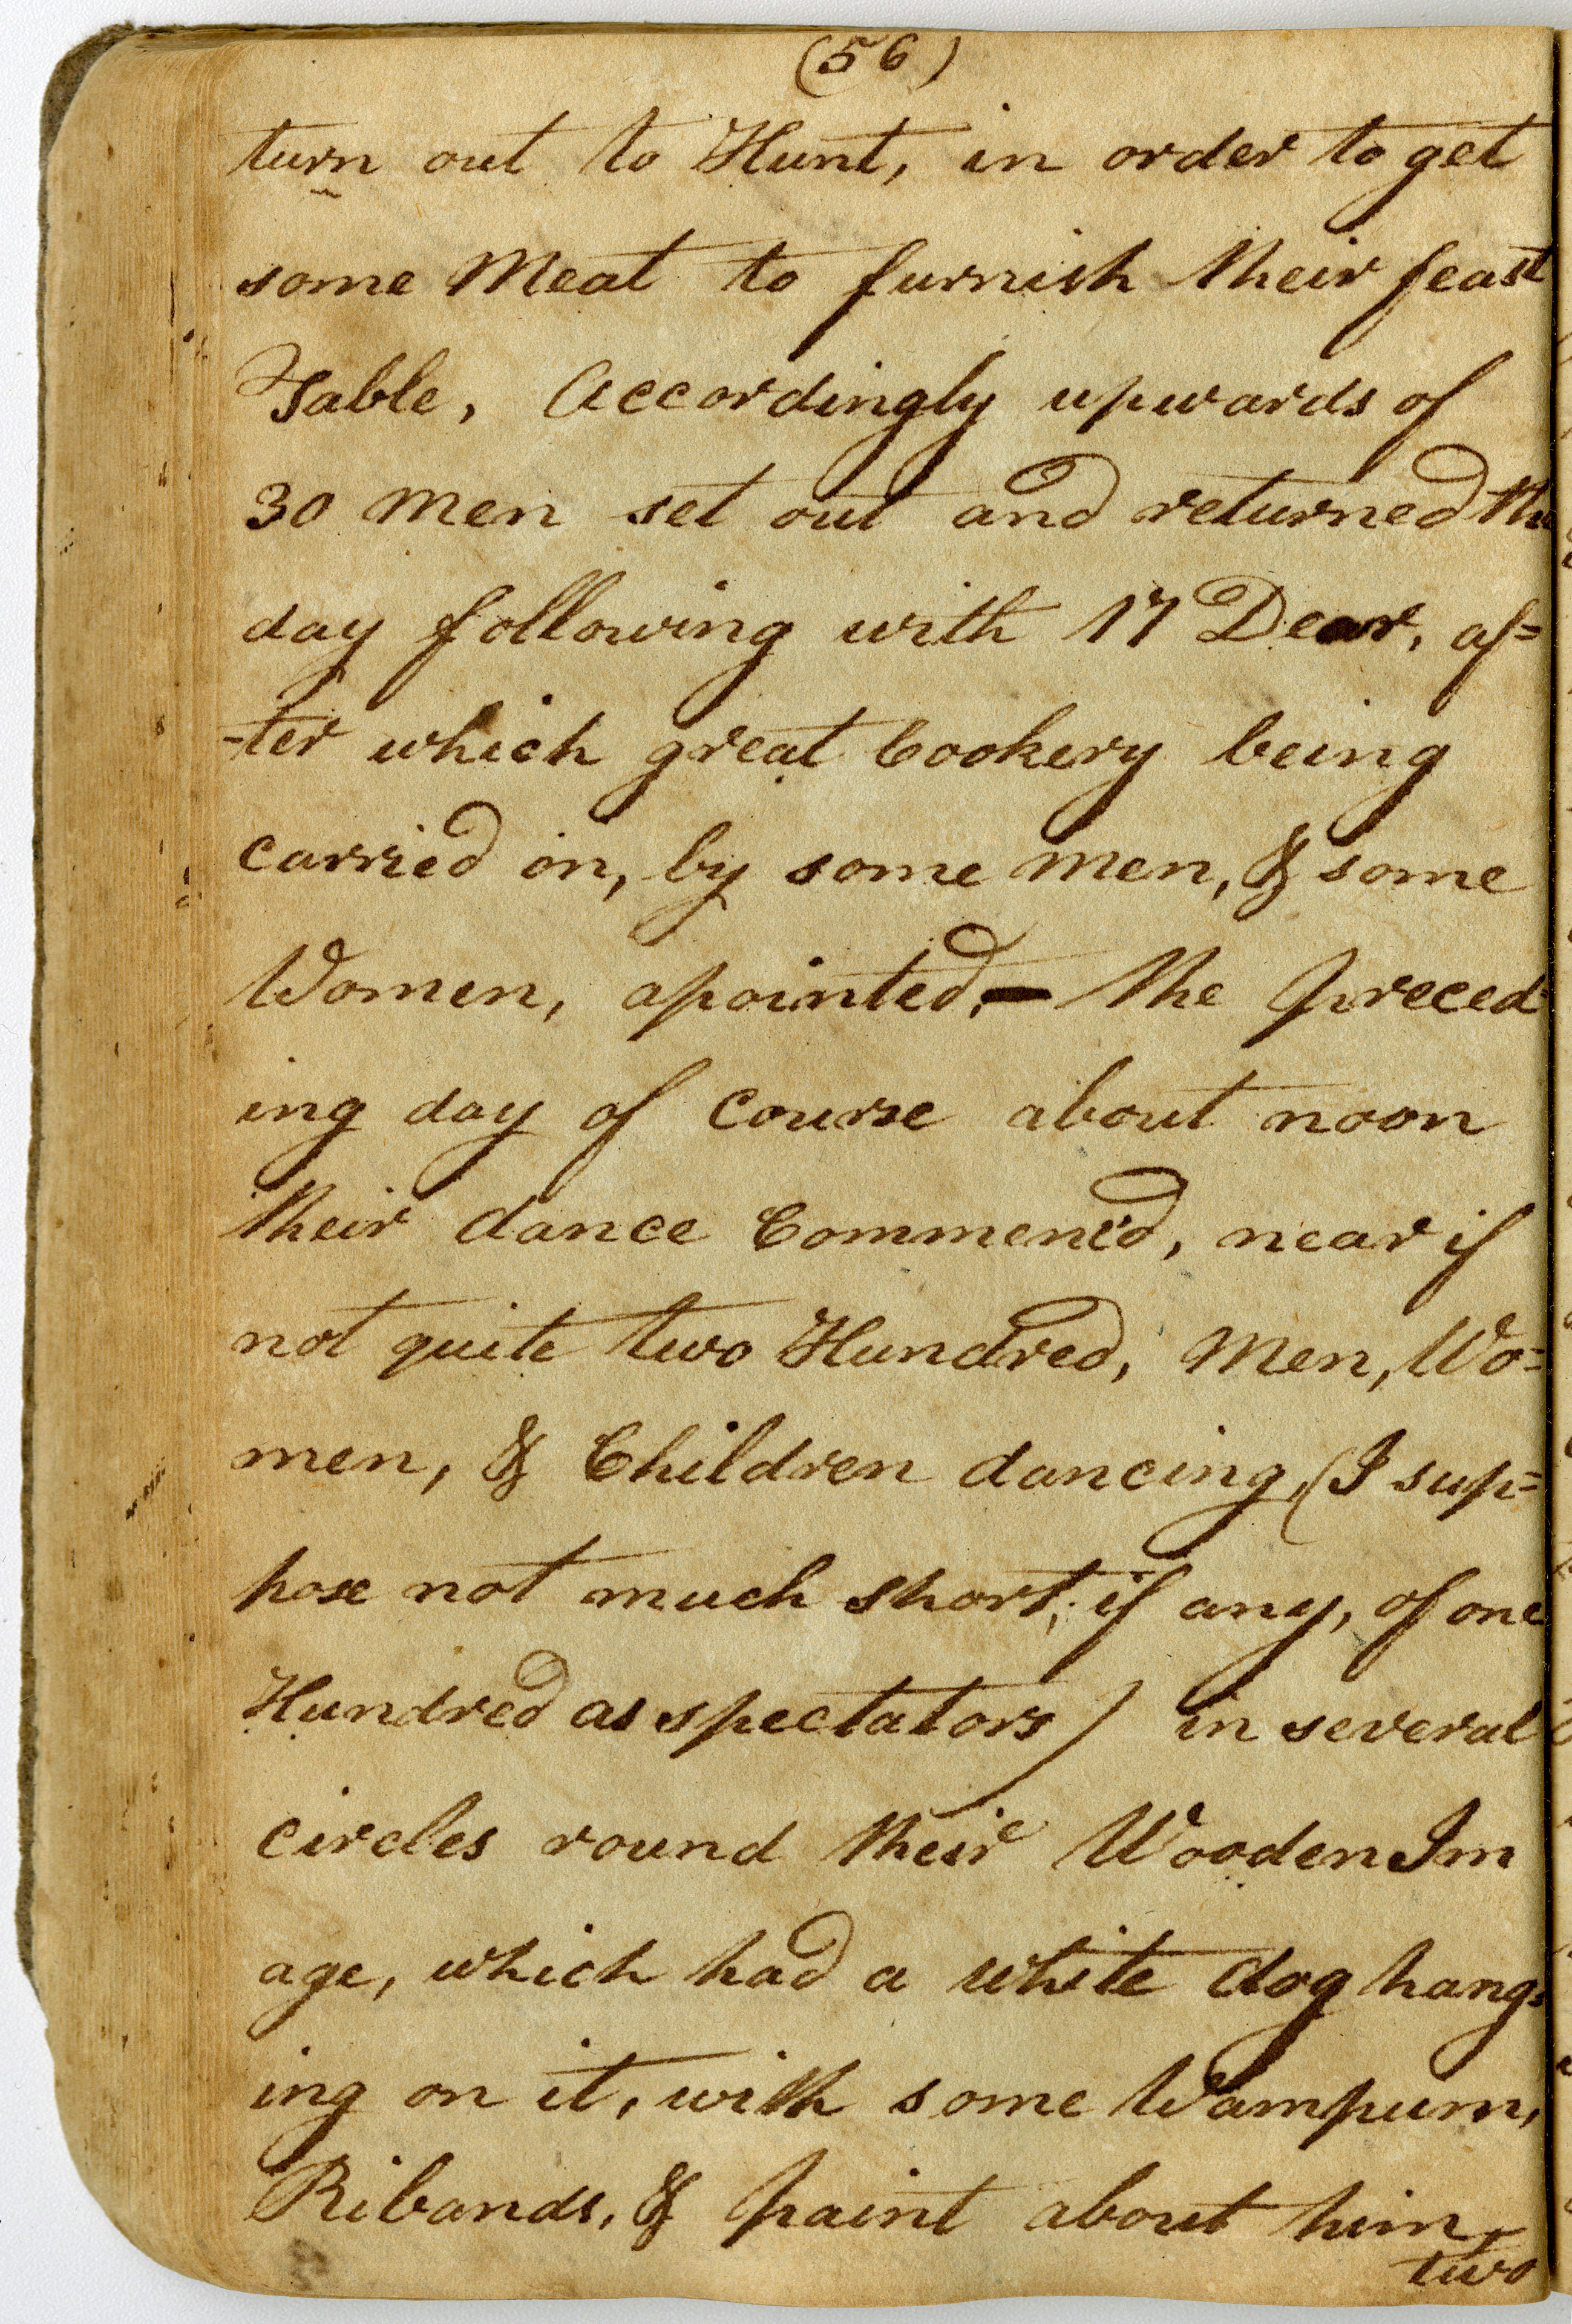 (56)
turn out to Hunt, in order to get
some Meat to furnish their feast
Table, Accordingly upwards of
30 Men set out and returned the
day following with 17 Dear, af=
-ter which great Cookery being
carried on, by some Men, & some
Women, apointed, — the preced=
ing day of Course about noon
their dance Commenc'd, near if
not quite two Hundred, Men, Wo=
men, & Children dancing, (I sup=
pose not much short, if any, of one
Hundred as spectators) in several
circles round their Wooden Im
age, which had a white dog hang=
ing on it, with some Wampum,
Ribands, & paint about him,
two